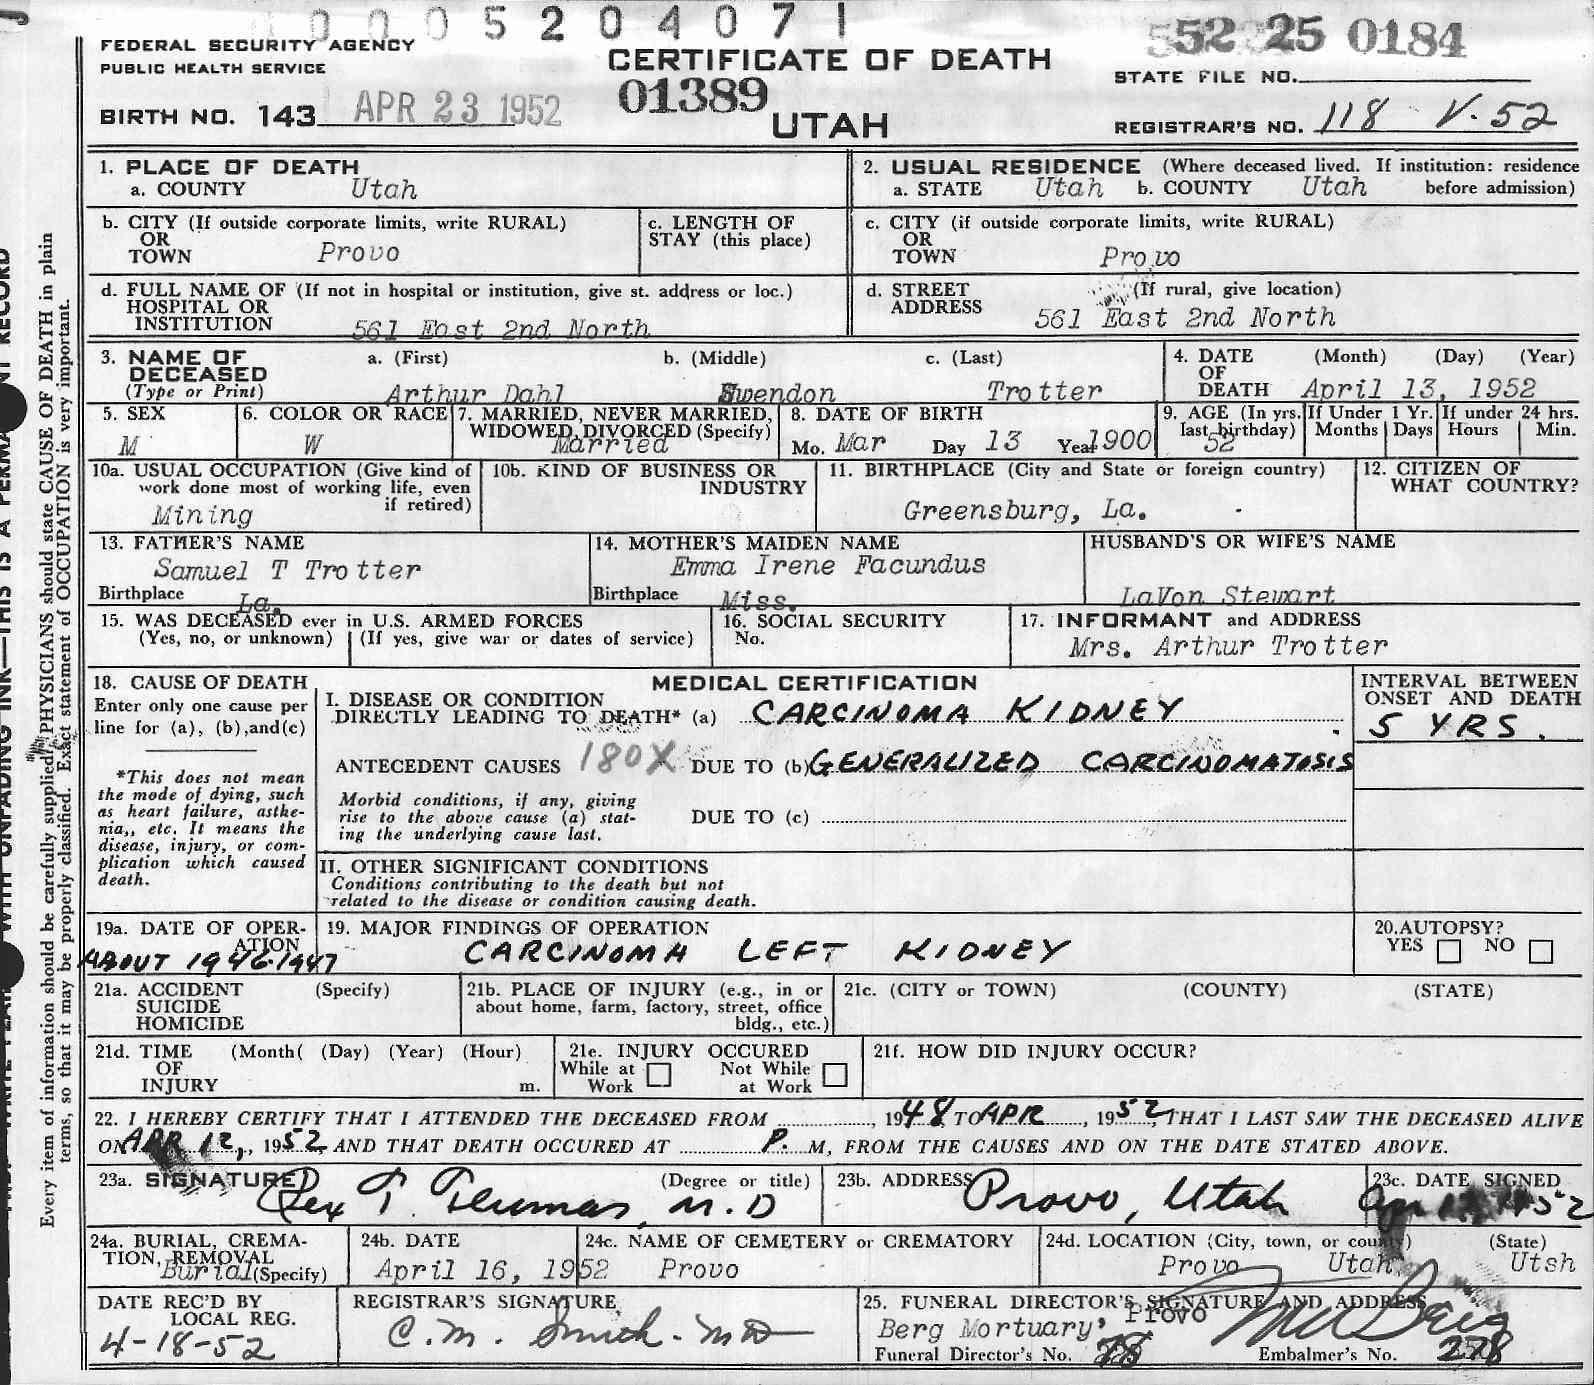 0000520407 1
552 25 0184
FEDERAL SECURITY AGENCY
PUBLIC HEALTH SERVICE
CERTIFICATE OF DEATH
STATE FILE NO.
01389
BIRTH NO. 143 APR 23 1952
UTAH
REGISTRAR'S NO. 118 V-52
1. PLACE OF DEATH
a. COUNTY Utah
2. USUAL RESIDENCE (Where deceased lived. If institution: residence
a. STATE Utah b. COUNTY Utah before admission)
b. CITY (If outside corporate limits, write RURAL)
OR
TOWN Provo
c. LENGTH OF
STAY (this place)
c. CITY (if outside corporate limits, write RURAL)
OR
TOWN Provo
d. FULL NAME OF (If not in hospital or institution, give st. address or loc.)
HOSPITAL OR
INSTITUTION 561 East 2nd North
d. STREET (If rural, give location)
ADDRESS 561 East 2nd North
3. NAME OF a. (First) b. (Middle) c. (Last)
DECEASED
(Type or Print) Arthur Dahl Swendon Trotter
4. DATE (Month) (Day) (Year)
OF
DEATH April 13, 1952
5. SEX
M
6. COLOR OR RACE
W
7. MARRIED, NEVER MARRIED,
WIDOWED, DIVORCED (Specify)
Married
8. DATE OF BIRTH
Mo. Mar Day 13 Year 1900
9. AGE (In yrs.
last birthday)
52
If Under 1 Yr.
Months Days
If under 24 hrs.
Hours Min.
10a. USUAL OCCUPATION (Give kind of
work done most of working life, even
if retired)
Mining
10b. KIND OF BUSINESS OR
INDUSTRY
11. BIRTHPLACE (City and State or foreign country)
Greensburg, La.
12. CITIZEN OF
WHAT COUNTRY?
13. FATHER'S NAME
Samuel T Trotter
Birthplace La.
14. MOTHER'S MAIDEN NAME
Emma Irene Facundus
Birthplace Miss.
HUSBAND'S OR WIFE'S NAME
LaVon Stewart
15. WAS DECEASED ever in U.S. ARMED FORCES
(Yes, no, or unknown) (If yes, give war or dates of service)
16. SOCIAL SECURITY
No.
17. INFORMANT and ADDRESS
Mrs. Arthur Trotter
18. CAUSE OF DEATH
Enter only one cause per
line for (a), (b),and(c)
*This does not mean
the mode of dying, such
as heart failure, asthe-
nia,, etc. It means the
disease, injury, or com-
plication which caused
death.
MEDICAL CERTIFICATION
I. DISEASE OR CONDITION
DIRECTLY LEADING TO DEATH* (a) CARCINOMA KIDNEY
ANTECEDENT CAUSES 180X DUE TO (b) GENERALIZED CARCINOMATOSIS
Morbid conditions, if any, giving
rise to the above cause (a) stat-
ing the underlying cause last.
DUE TO (c)
II. OTHER SIGNIFICANT CONDITIONS
Conditions contributing to the death but not
related to the disease or condition causing death.
INTERVAL BETWEEN
ONSET AND DEATH
5 YRS.
19a. DATE OF OPER-
ATION
ABOUT 1946-1947
19. MAJOR FINDINGS OF OPERATION
CARCINOMA LEFT KIDNEY
20.AUTOPSY?
YES NO
21a. ACCIDENT (Specify)
SUICIDE
HOMICIDE
21b. PLACE OF INJURY (e.g., in or
about home, farm, factory, street, office
bldg., etc.)
21c. (CITY or TOWN) (COUNTY) (STATE)
21d. TIME (Month( (Day) (Year) (Hour)
OF
INJURY m.
21e. INJURY OCCURED
While at Not While
Work at Work
21f. HOW DID INJURY OCCUR?
22. I HEREBY CERTIFY THAT I ATTENDED THE DECEASED FROM , 1948 TO APR , 1952, THAT I LAST SAW THE DECEASED ALIVE
ON APR 12, 1952, AND THAT DEATH OCCURED AT P. M, FROM THE CAUSES AND ON THE DATE STATED ABOVE.
23a. SIGNATURE (Degree or title)
Rex T. Thomas, M.D
23b. ADDRESS Provo, Utah
23c. DATE SIGNED
1952
24a. BURIAL, CREMA-
TION, REMOVAL
Burial (Specify)
24b. DATE
April 16, 1952
24c. NAME OF CEMETERY or CREMATORY
Provo
24d. LOCATION (City, town, or county) (State)
Provo Utah Utsh
DATE REC'D BY
LOCAL REG.
4-18-52
REGISTRAR'S SIGNATURE
C.M. Smith - MD
25. FUNERAL DIRECTOR'S SIGNATURE AND ADDRESS
Berg Mortuary, Provo
Funeral Director's No. Embalmer's No. 278
Every item of information should be carefully supplied. PHYSICIANS should state CAUSE OF DEATH in plain
terms, so that it may be properly classified. Exact statement of OCCUPATION is very important.